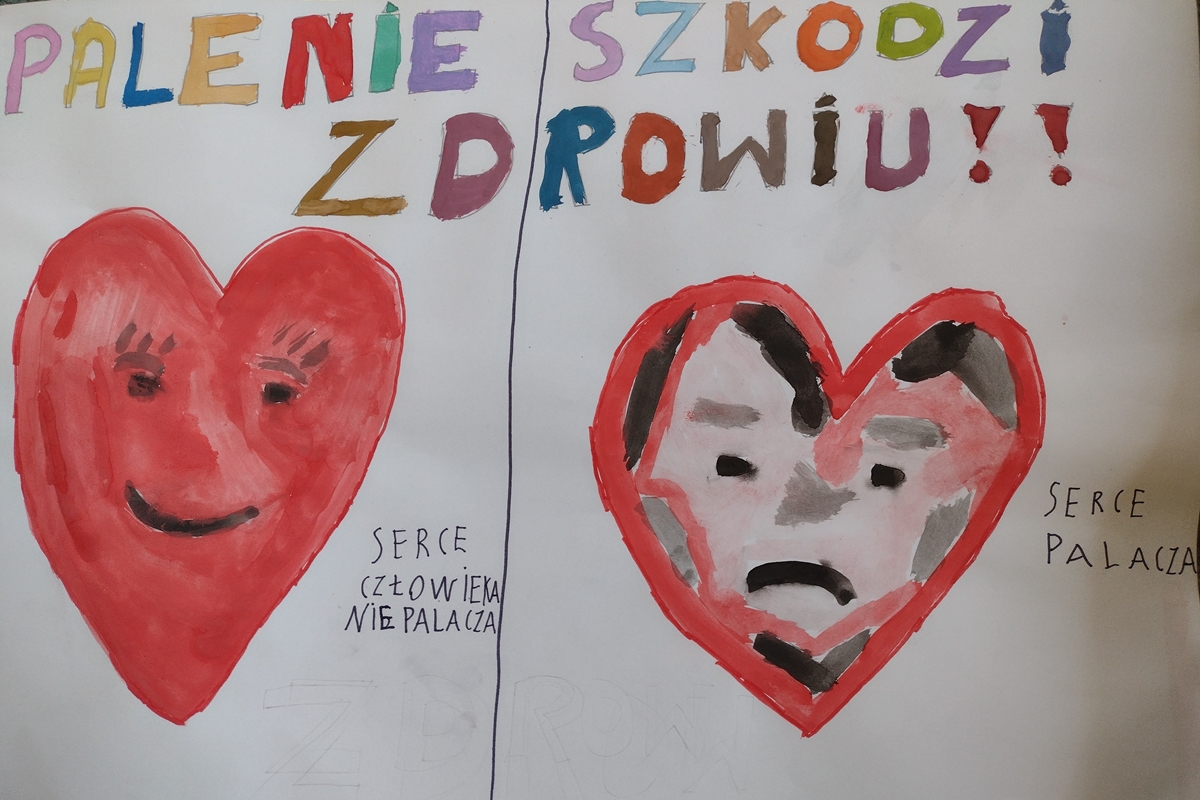 PALENIE SZKODZI
ZDROWIU!!
SERCE
CZŁOWIEKA
NIE PALACZA
SERCE
PALACZA
ZDROW